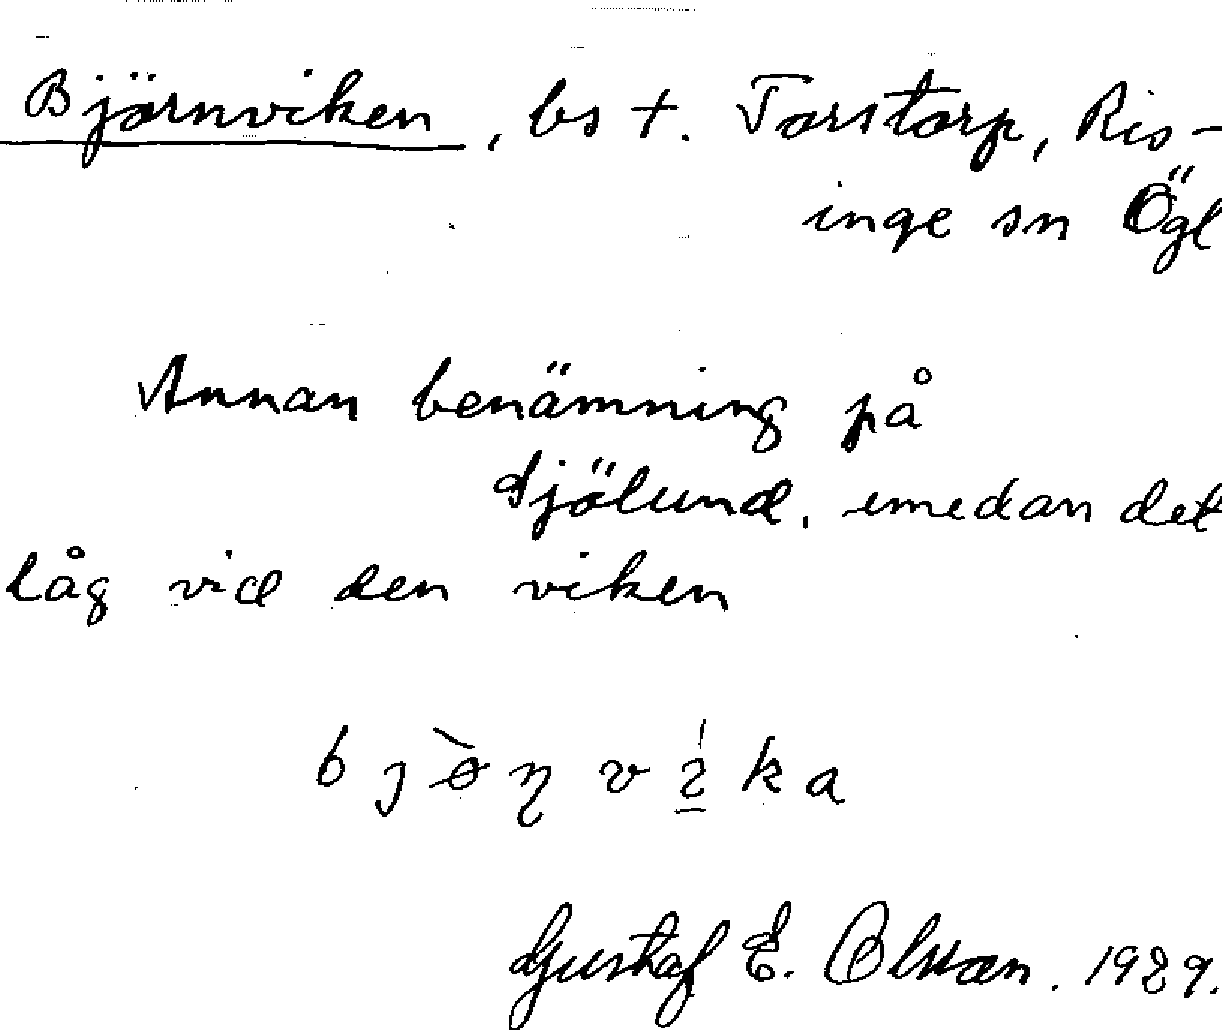 Björnviken, bs t. Torstorp, Ris-
inge sn Ögl
Annan benämning på
Sjölund, emedan det
låg vid den viken
Gustaf E. Olsson. 1929.